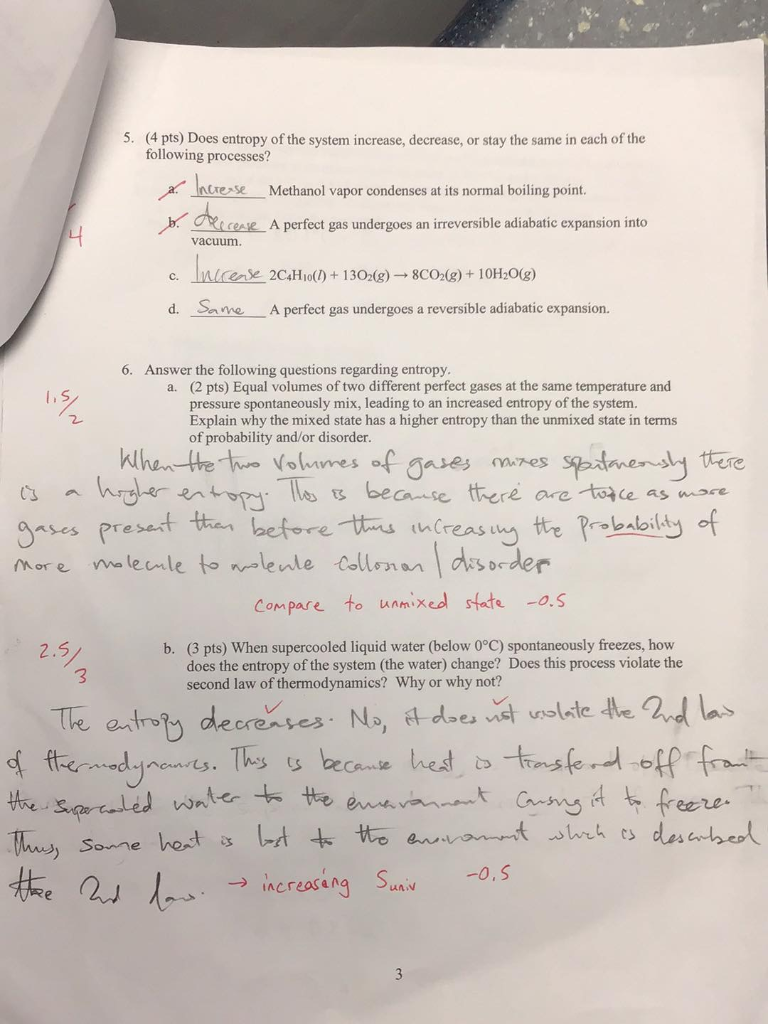 5. (4 pts) Does entropy of the system increase, decrease, or stay the same in each of the
following processes?
a. Increase Methanol vapor condenses at its normal boiling point.
b. decrease A perfect gas undergoes an irreversible adiabatic expansion into
vacuum.
4
c. Increase 2C₄H₁₀(l) + 13O₂(g) → 8CO₂(g) + 10H₂O(g)
d. Same A perfect gas undergoes a reversible adiabatic expansion.
6. Answer the following questions regarding entropy.
1.5/2
a. (2 pts) Equal volumes of two different perfect gases at the same temperature and
pressure spontaneously mix, leading to an increased entropy of the system.
Explain why the mixed state has a higher entropy than the unmixed state in terms
of probability and/or disorder.
When the two volumes of gases mixes spontaneously there
is a higher entropy. This is because there are twice as more
gases present then before thus increasing the Probability of
more molecule to molecule collosion / disorder
Compare to unmixed state -0.5
2.5/3
b. (3 pts) When supercooled liquid water (below 0°C) spontaneously freezes, how
does the entropy of the system (the water) change? Does this process violate the
second law of thermodynamics? Why or why not?
The entropy decreases. No, it does not violate the 2nd law
of thermodynamics. This is because heat is transferred off from
the supercooled water to the environment causing it to freeze.
Thus, some heat is lost to the environment which is described
the 2nd law. → increasing Suniv -0.5
3